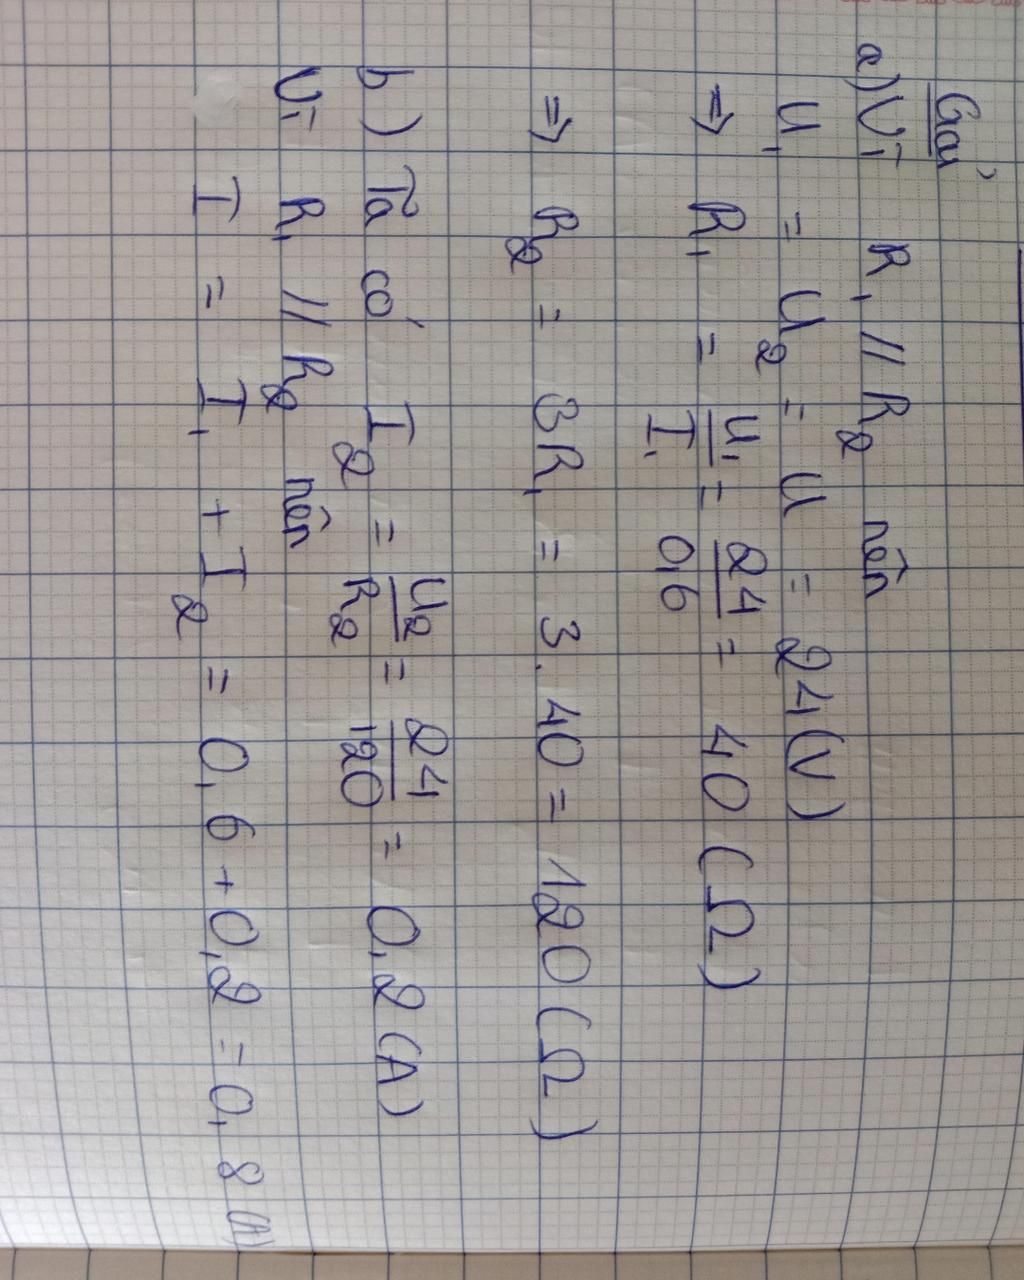 Giải
a) Vì R₁ // R₂ nên
U₁ = U₂ = U = 24(V)
⇒ R₁ = U₁/I₁ = 24/0,6 = 40 (Ω)
⇒ R₂ = 3R₁ = 3.40 = 120 (Ω)
b) Ta có I₂ = U₂/R₂ = 24/120 = 0,2 (A)
Vì R₁ // R₂ nên
I = I₁ + I₂ = 0,6 + 0,2 = 0,8 (A)